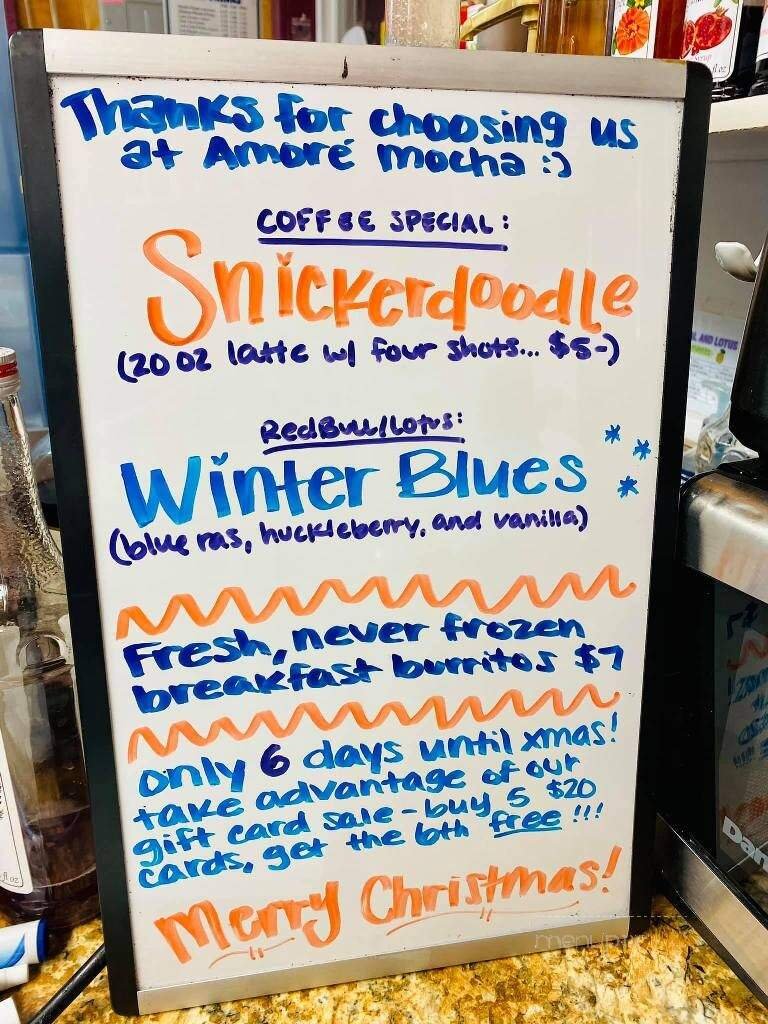 Thanks for choosing us
at Amoré mocha :)
COFFEE SPECIAL:
Snickerdoodle
(20 oz latte w/ four shots... $5-)
RedBull/Lotus:
Winter Blues
(blue ras, huckleberry, and vanilla)
Fresh, never frozen
breakfast burritos $7
only 6 days until xmas!
take advantage of our
gift card sale - buy 5 $20
cards, get the 6th free!!!
Merry Christmas!
AND LOTUS